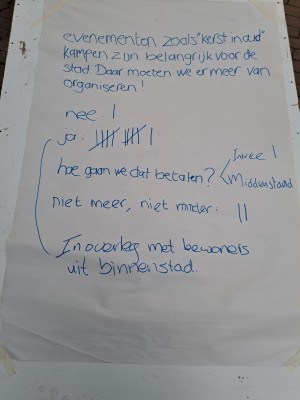 evenementen zoals "kerst in oud"
kampen zijn belangrijk voor de
stad. Daar moeten we er meer van
organiseren!
nee: I
ja: IIII IIII I
hoe gaan we dat betalen? < Inree I
Middenstand
niet meer, niet minder: II
In overleg met bewoners
uit binnenstad.